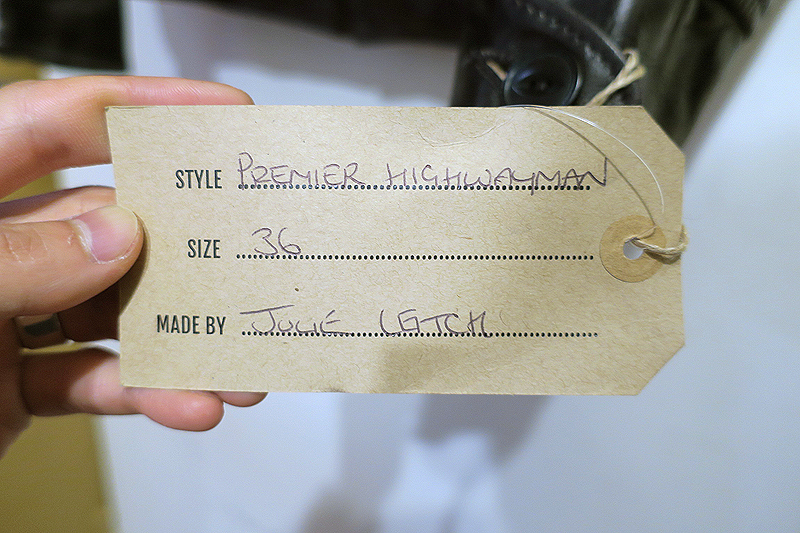 STYLE PREMIER HIGHWAYMAN
SIZE 36
MADE BY JULIE LEITCH